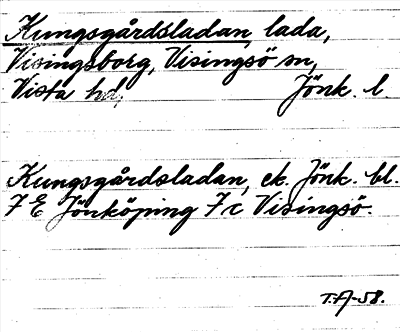 Kungsgårdsladan, lada,
Visingsborg, Visingsö sn,
Vista hd, Jönk. l.
Kungsgårdsladan, ek. Jönk. bl.
7 E Jönköping 7 c Visingsö.
T.A-58.